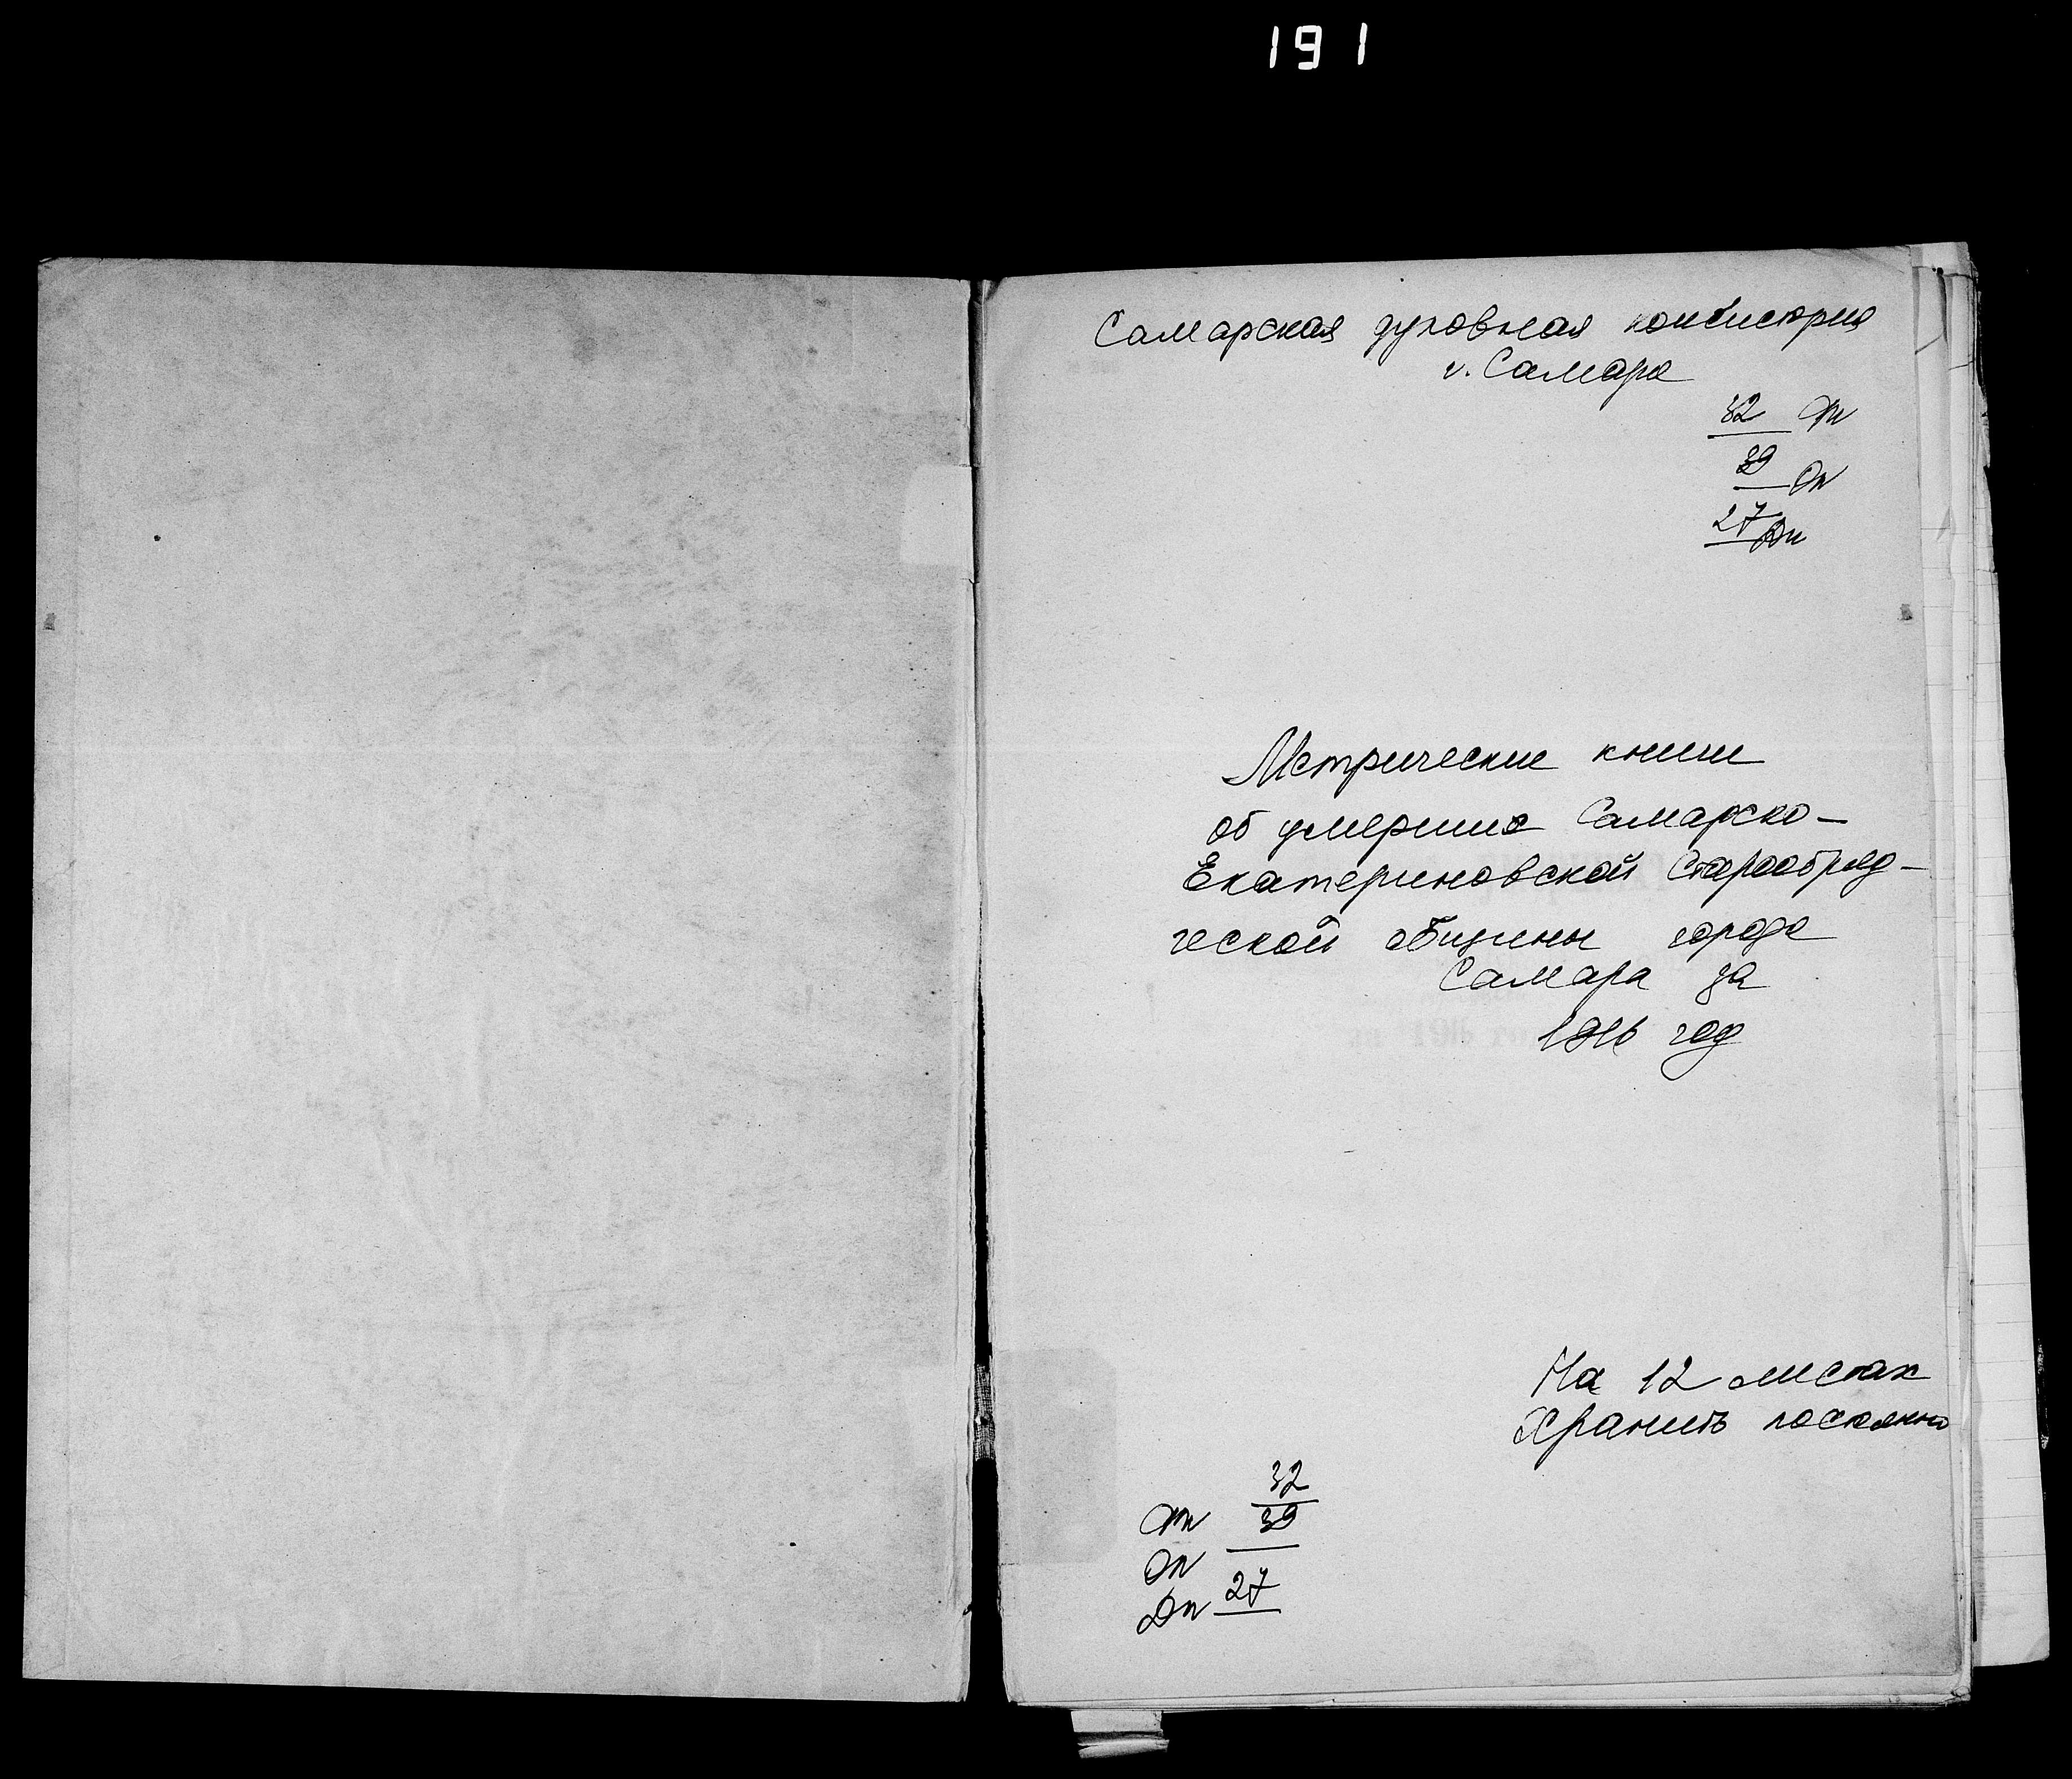 191
Самарская духовная консистория
г. Самара
32 Фн
39 Оп
27 Дн
Метрические книги
об умерших Самарско-
Екатериновской Старообряд-
ческой общины города
Самара за
1916 год
На 12 листах
Хранить постоянно
32
Фн 39
Оп
Дн 27